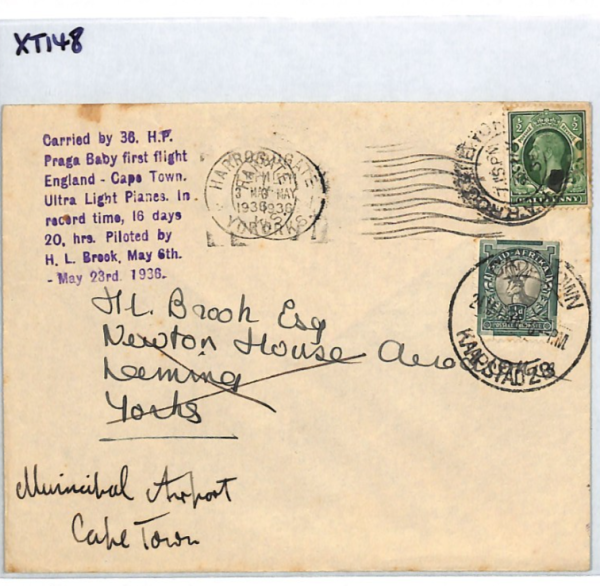 XT148
Carried by 36. H.P.
Praga Baby first flight
England - Cape Town.
Ultra Light Planes. In
record time, 16 days
20, hrs. Piloted by
H. L. Brook, May 6th.
- May 23rd. 1936.
HARROGATE
MAY
1936
YORKS
HALFPENNY
H.L. Brook Esq
Newton House
Leeming
Yorks
KAAPSTAD
Municipal Airport
Cape Town